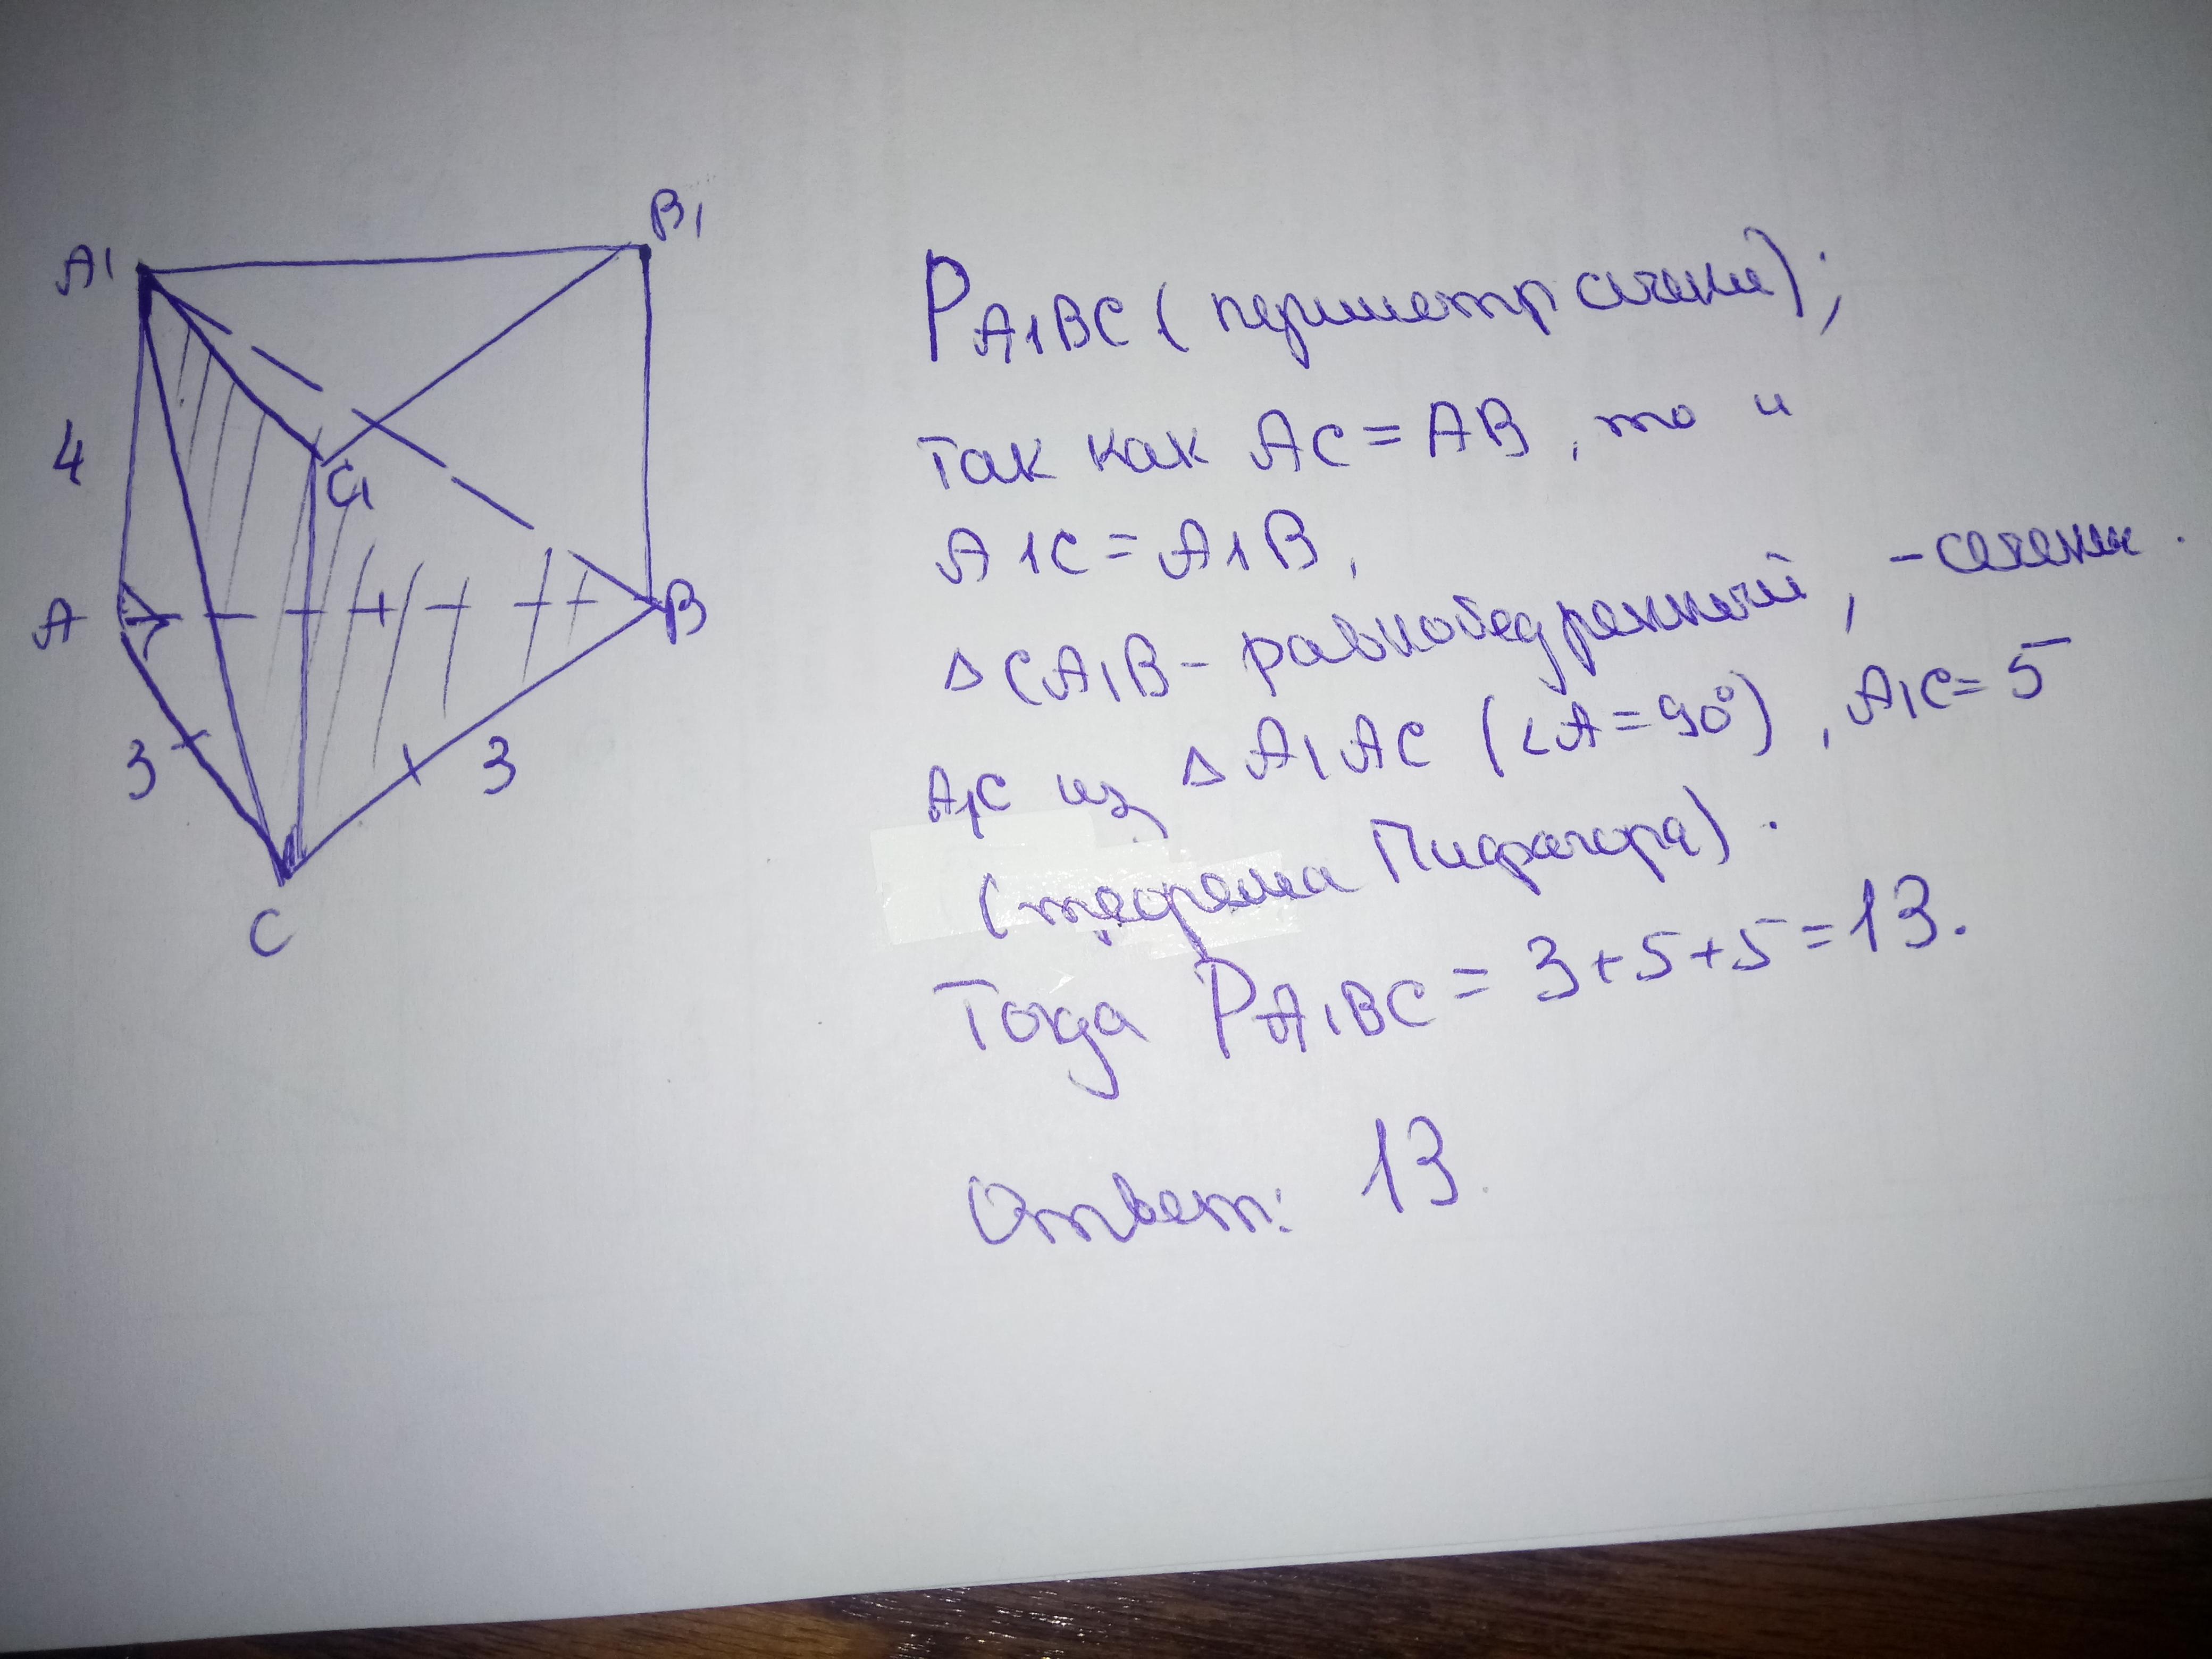 A1
B1
4
C1
A
B
3
3
C
PA1BC (периметр сечения);
Так как AC = AB, то и
A1C = A1B,
∆CA1B - равнобедренный, - сечение.
A1C из ∆A1AC (∠A = 90°), A1C = 5
(теорема Пифагора).
Тогда PA1BC = 3+5+5=13.
Ответ: 13.